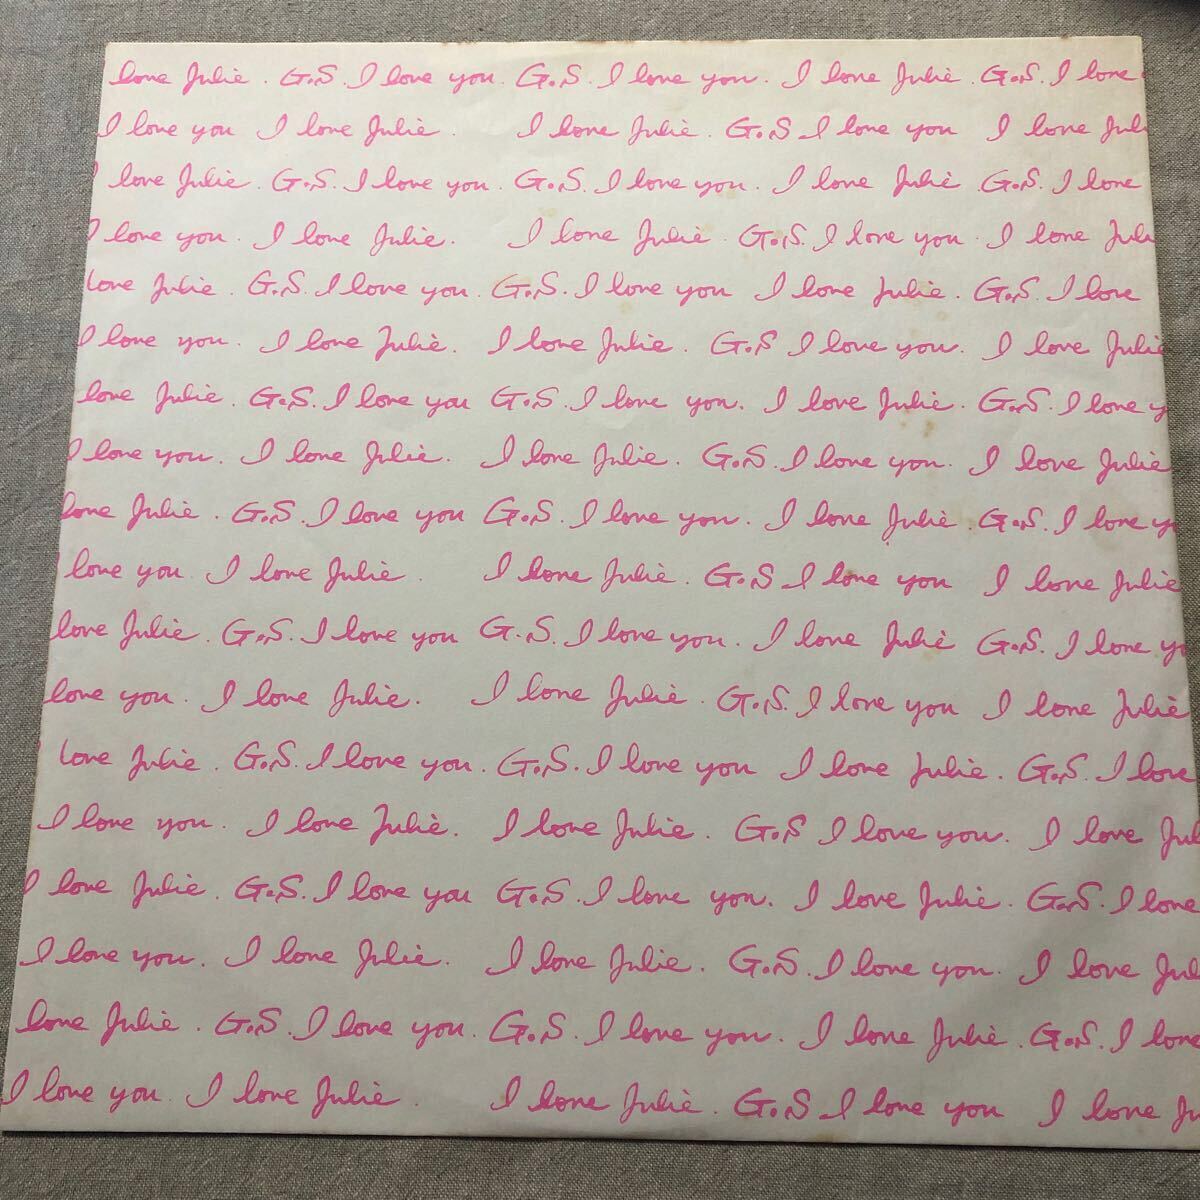 love Julie. G.S. I love you. G.S. I love you. I love Julie. G.S. I love
I love you I love Julie. I love Julie. G.S I love you I love Juli
I love Julie. G.S. I love you. G.S. I love you. I love Julie G.S. I love
I love you. I love Julie. I love Julie. G.S. I love you. I love Juli
Love Julie. G.S. I love you. G.S. I love you I love Julie. G.S. I love
I love you. I love Julie. I love Julie. G.S I love you. I love Julie
love Julie. G.S. I love you G.S. I love you. I love Julie. G.S. I love y
I love you. I love Julie. I love Julie. G.S. I love you. I love Julie
love Julie. G.S. I love you G.S. I love you. I love Julie G.S. I love y
I love you I love Julie. I love Julie. G.S I love you I love Julie
love Julie. G.S. I love you G.S. I love you. I love Julie G.S. I love yo
love you. I love Julie. I love Julie. G.S. I love you I love Julie
Love Julie. G.S. I love you. G.S. I love you I love Julie. G.S. I love
I love you. I love Julie. I love Julie. G.S I love you. I love Jul
I love Julie. G.S. I love you G.S. I love you. I love Julie. G.S. I love
I love you. I love Julie. I love Julie. G.S. I love you. I love Jul
love Julie. G.S. I love you. G.S. I love you. I love Julie. G.S. I love
I love you. I love Julie. I love Julie. G.S I love you I love Ju